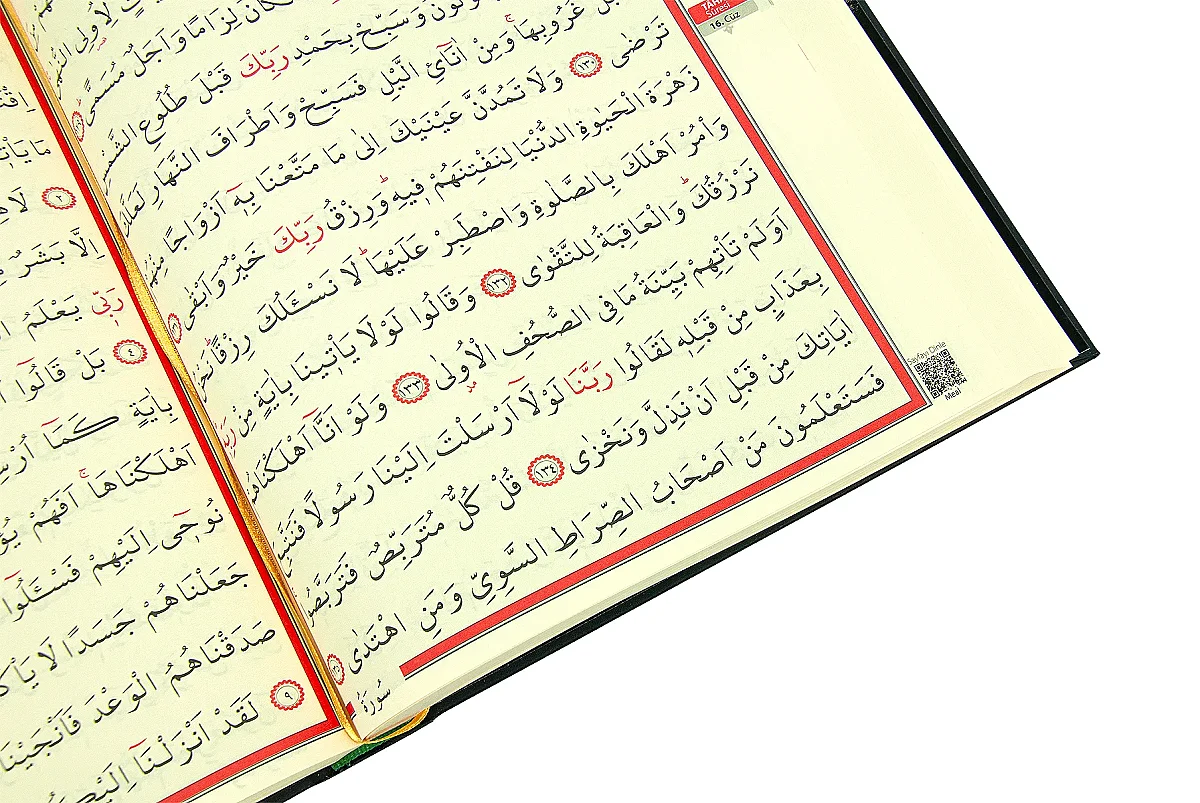 TÂHÂ
Suresi
16. Cüz
لِزَامًا وَاَجَلٌ مُسَمًّىۜ
وَسَبِّحْ بِحَمْدِ رَبِّكَ قَبْلَ طُلُوعِ الشَّمْسِ
غُرُوبِهَاۚ وَمِنْ اٰنَٓائِ الَّيْلِ فَسَبِّحْ وَاَطْرَافَ النَّهَارِ لَعَلَّكَ
تَرْضٰى ﴿١٣٠﴾ وَلَا تَمُدَّنَّ عَيْنَيْكَ اِلٰى مَا مَتَّعْنَا بِه۪ٓ اَزْوَاجًا مِنْهُمْ
زَهْرَةَ الْحَيٰوةِ الدُّنْيَا لِنَفْتِنَهُمْ ف۪يهِۜ وَرِزْقُ رَبِّكَ خَيْرٌ وَاَبْقٰى
وَأْمُرْ اَهْلَكَ بِالصَّلٰوةِ وَاصْطَبِرْ عَلَيْهَاۜ لَا نَسْـَٔلُكَ رِزْقًاۜ نَحْنُ
نَرْزُقُكَۜ وَالْعَاقِبَةُ لِلتَّقْوٰى ﴿١٣٢﴾ وَقَالُوا لَوْلَا يَأْت۪ينَا بِاٰيَةٍ مِنْ رَبِّه۪ۜ
اَوَلَمْ تَأْتِهِمْ بَيِّنَةُ مَا فِي الصُّحُفِ الْاُو۫لٰى ﴿١٣٣﴾ وَلَوْ اَنَّٓا اَهْلَكْنَاهُمْ
بِعَذَابٍ مِنْ قَبْلِه۪ لَقَالُوا رَبَّنَا لَوْلَٓا اَرْسَلْتَ اِلَيْنَا رَسُولًا فَنَتَّبِعَ
اٰيَاتِكَ مِنْ قَبْلِ اَنْ نَذِلَّ وَنَخْزٰى ﴿١٣٤﴾ قُلْ كُلٌّ مُتَرَبِّصٌ فَتَرَبَّصُوا
فَسَتَعْلَمُونَ مَنْ اَصْحَابُ الصِّرَاطِ السَّوِيِّ وَمَنِ اهْتَدٰى ﴿١٣٥﴾
سُورَةُ
Sayfayı Dinle
Meal
﴿٢﴾ لَاهِ
اِلَّا بَشَرٌ
رَبّ۪ي يَعْلَمُ
﴿٤﴾ بَلْ قَالُٓوا
بِاٰيَةٍ كَمَٓا اُرْسِ
اَهْلَكْنَاهَاۚ اَفَهُمْ
نُوح۪ٓي اِلَيْهِمْ فَسْـَٔلُٓوا
جَعَلْنَاهُمْ جَسَدًا لَا
صَدَقْنَاهُمُ الْوَعْدَ فَاَنْجَيْنَا
﴿٩﴾ لَقَدْ اَنْزَلْنَٓا